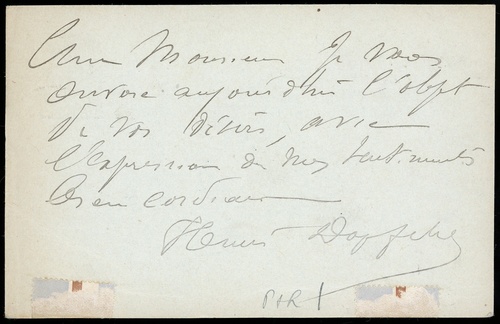 Cher Monsieur Je vous
envoie aujourd'hui l'objet
de vos désirs, avec
l'expression de mes sentiments
bien cordiaux
Henri
P+R